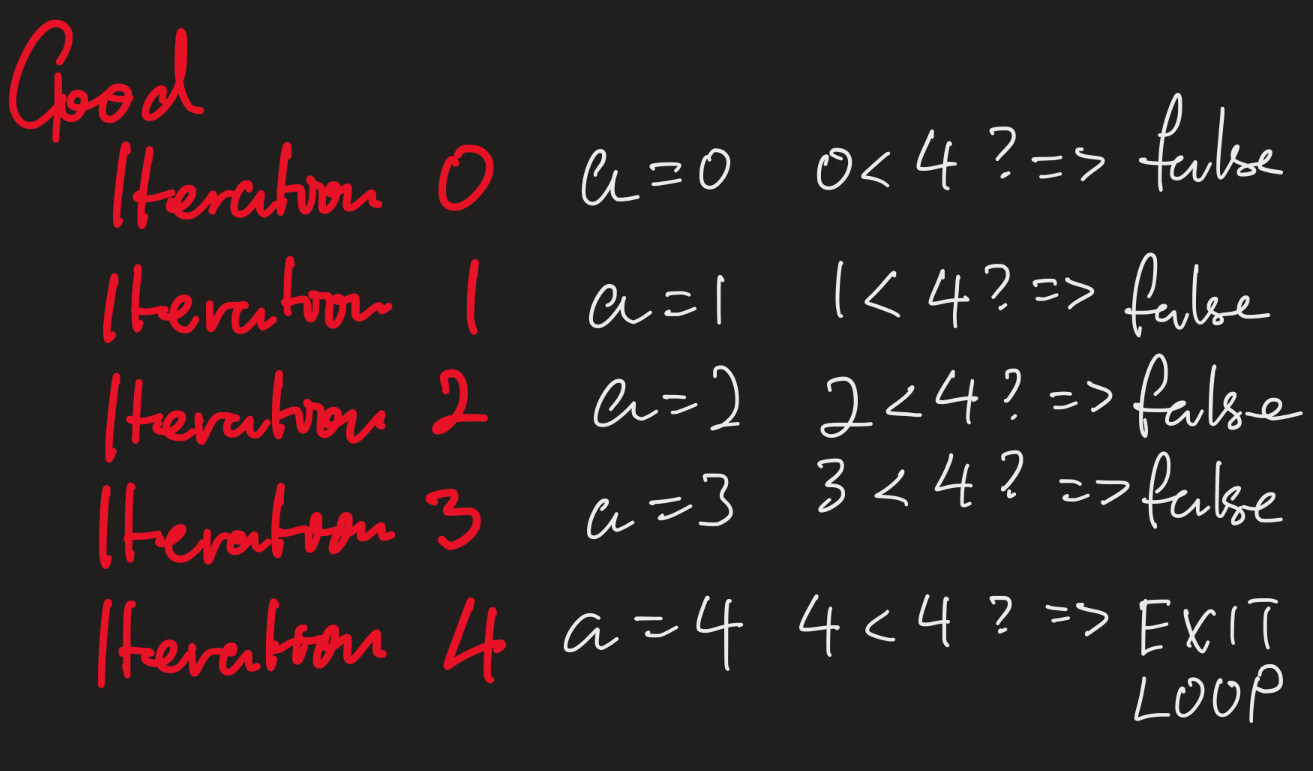 Good
Iteration 0 a=0 0<4 ?=> false
Iteration 1 a=1 1<4 ?=> false
Iteration 2 a=2 2<4 ? => false
Iteration 3 a=3 3<4 ? => false
Iteration 4 a=4 4<4 ? => EXIT
LOOP